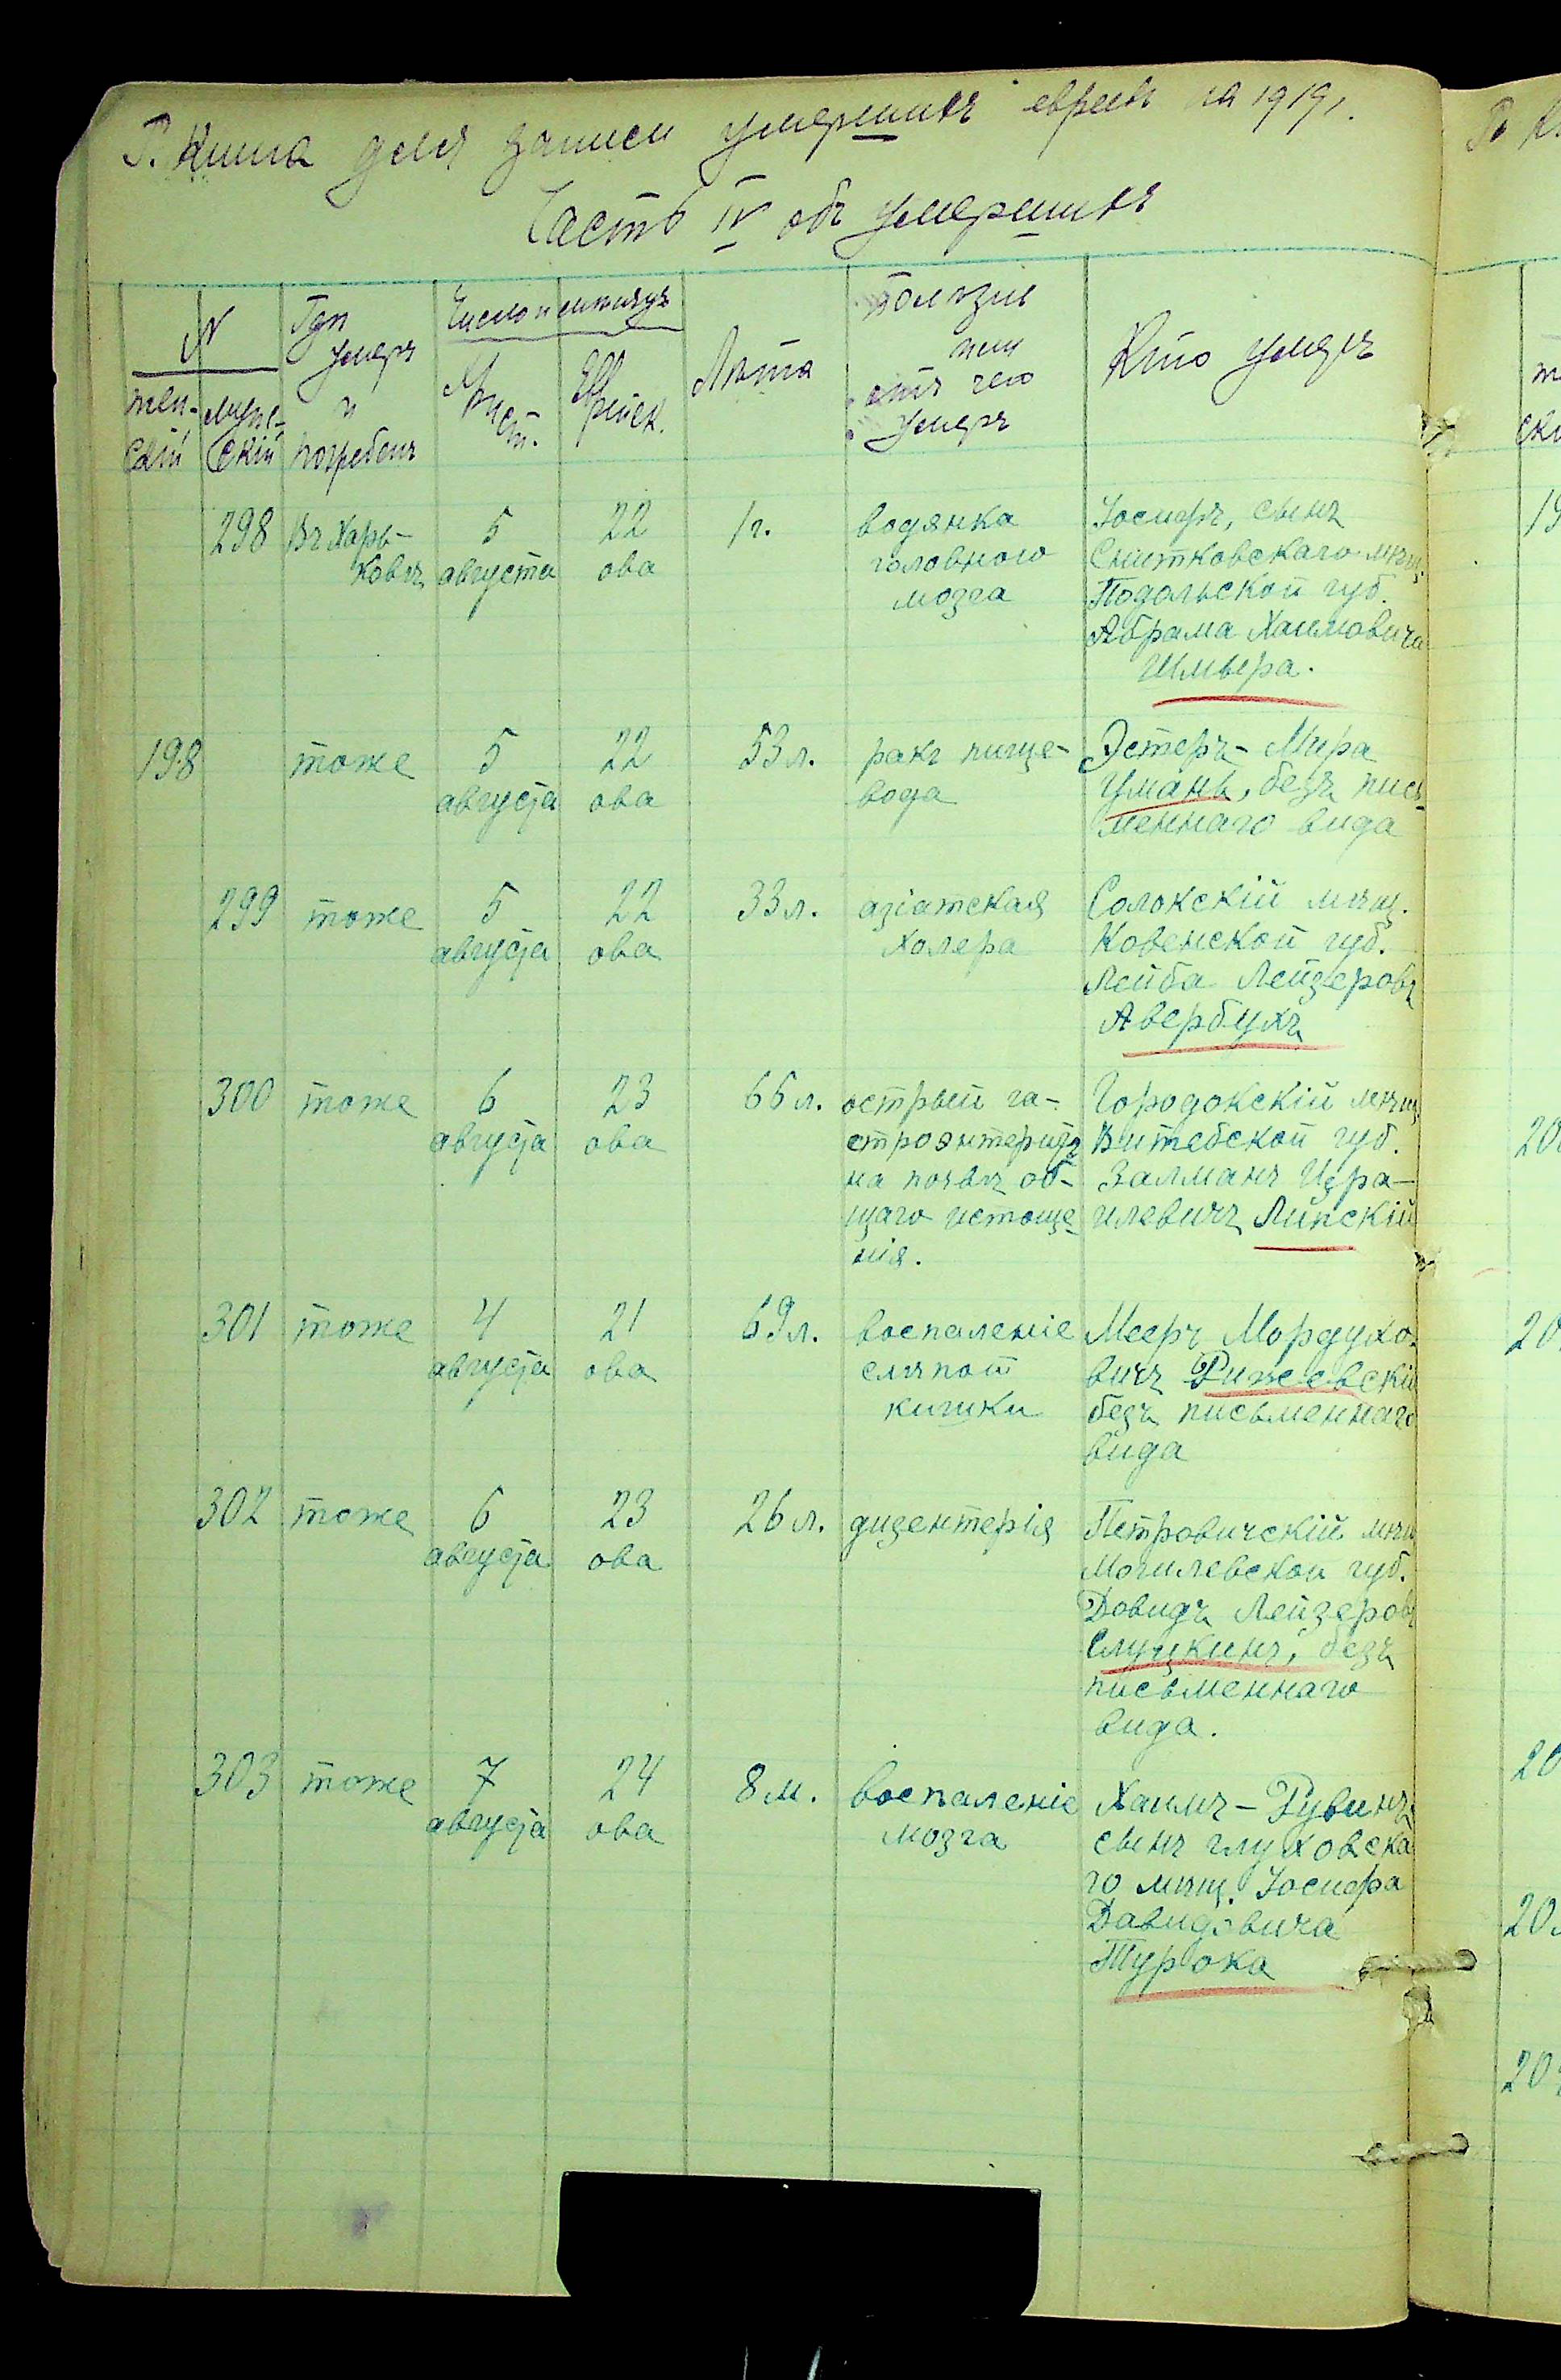 Книга для записи умершихъ евреевъ на 1919 г.
Часть IV объ умершихъ
№
жен-
скій
муже-
скій
Гдѣ
умеръ
и
погребенъ
Число и мѣсяцъ
Христ.
Еврейск.
Лѣта
Болѣзнь
или
отъ чего
умеръ
Кто умеръ
298 Въ Харь-
ковѣ
5
августа
22
ова
1 г.
водянка
головного
мозга
Іосифъ, сынъ
Снитковскаго мѣщ.
Подольской губ.
Абрама Хаимовича
Шмьера.
198 тоже
5
августа
22
ова
53 л.
ракъ пище-
вода
Эстеръ-Мира
Умань, безъ пись-
меннаго вида
299 тоже
5
августа
22
ова
33 л.
азіатская
холера
Солокскій мѣщ.
Ковенской губ.
Лейба Лейзеровъ
Авербухъ
300 тоже
6
августа
23
ова
66 л.
острый га-
строэнтеритъ
на почвѣ об-
щаго истоще-
нія.
Городокскій мѣщ.
Витебской губ.
Залманъ Изра-
илевичъ Липскій
301 тоже
4
августа
21
ова
69 л.
воспаленіе
слѣпой
кишки
Мееръ Мордухо-
вичъ Рижевскій
безъ письменнаго
вида
302 тоже
6
августа
23
ова
26 л.
дизентерія
Петровичскій мѣщ
Могилевской губ.
Довидъ Лейзеровъ
Слуцкинъ, безъ
письменнаго
вида.
303 тоже
7
августа
24
ова
8 м.
воспаленіе
мозга
Хаимъ-Рувинъ,
сынъ глуховска
го мѣщ. Іосифа
Давидовича
Турока